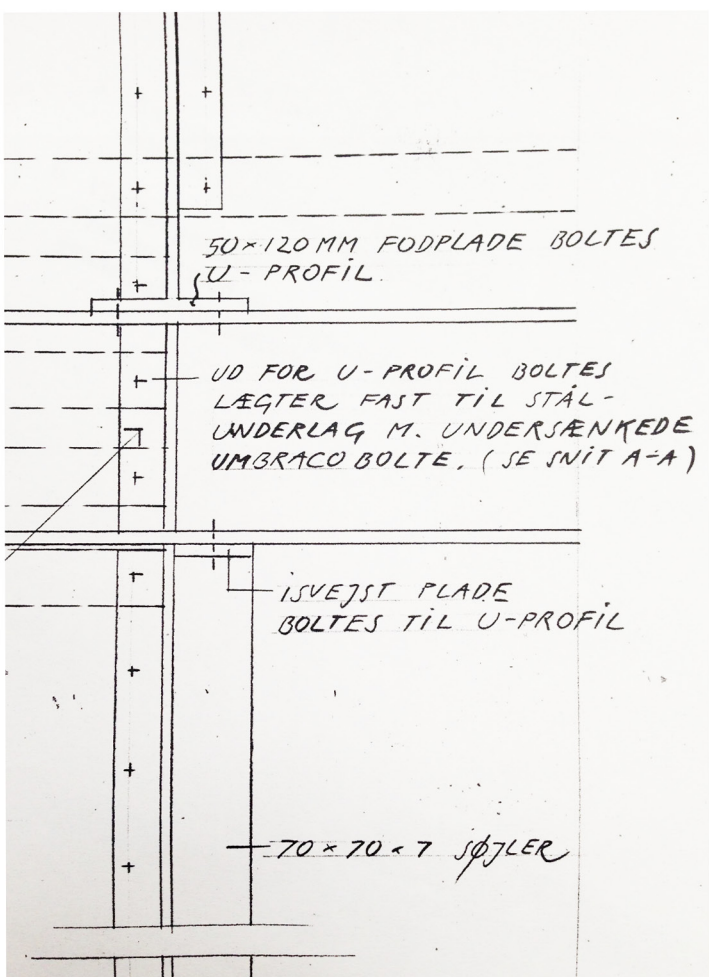 50×120 MM FODPLADE BOLTES
U-PROFIL.
UD FOR U-PROFIL BOLTES
LÆGTER FAST TIL STÅL-
UNDERLAG M. UNDERSÆNKEDE
UMBRACO BOLTE. (SE SNIT A-A)
ISVEJST PLADE
BOLTES TIL U-PROFIL
70×70×7 SØJLER